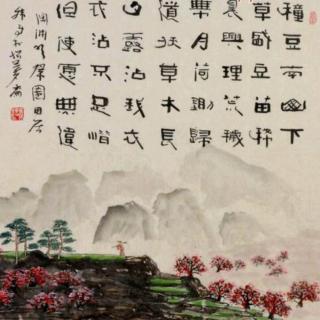 種豆南山下
草盛豆苗稀
晨興理荒穢
帶月荷鋤歸
道狹草木長
夕露沾我衣
衣沾不足惜
但使願無違
陶渊明歸園田居